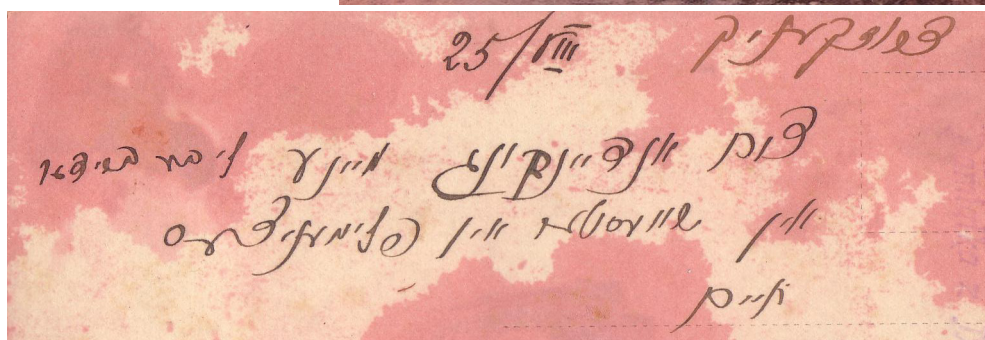 25/VIII
צום אנדיינקונג מיינע ליבע ברידער
אין שוועסטער אין פלימעניצעס
חיים